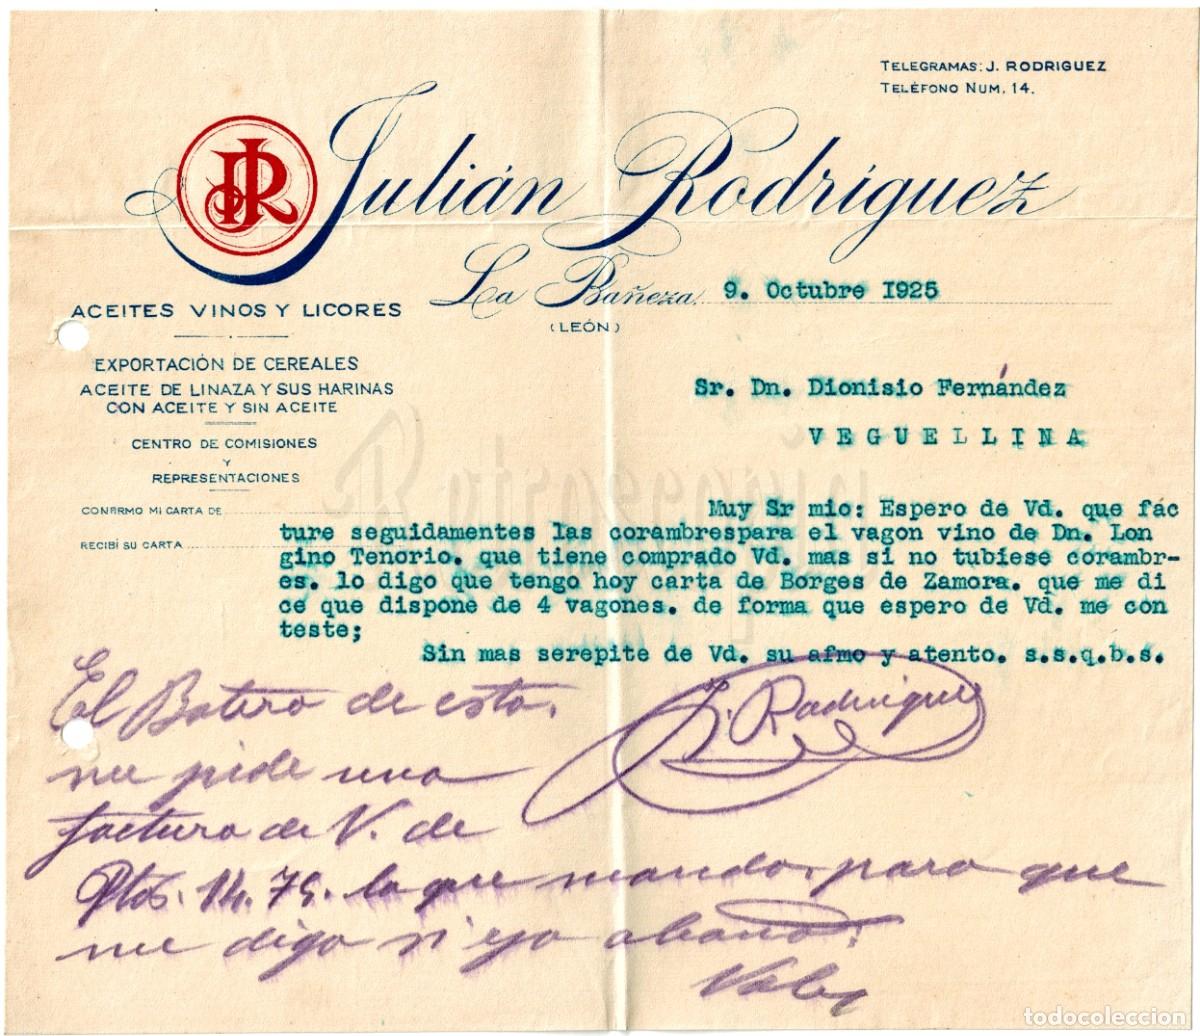 TELEGRAMAS: J. RODRIGUEZ
TELÉFONO NUM. 14.
JR
Julián Rodríguez
La Bañeza 9. Octubre 1925
(LEÓN)
ACEITES VINOS Y LICORES
EXPORTACIÓN DE CEREALES
ACEITE DE LINAZA Y SUS HARINAS
CON ACEITE Y SIN ACEITE
CENTRO DE COMISIONES
Y
REPRESENTACIONES
CONFIRMO MI CARTA DE
RECIBÍ SU CARTA
Sr. Dn. Dionisio Fernández
VEGUELLINA
Muy Sr mio: Espero de Vd. que fác
ture seguidamentes las corambrespara el vagon vino de Dn. Lon
gino Tenorio. que tiene comprado Vd. mas si no tubiese corambr-
es. lo digo que tengo hoy carta de Borges de Zamora. que me di
ce que dispone de 4 vagones. de forma que espero de Vd. me con
teste;
Sin mas serepite de Vd. su afmo y atento. s.s.q.b.s.
J. Rodriguez
El Botero de esta.
me pide una
factura de V. de
Ptas. 14.75. la que mando. para que
me diga si ya abonó.
Vale
todocoleccion